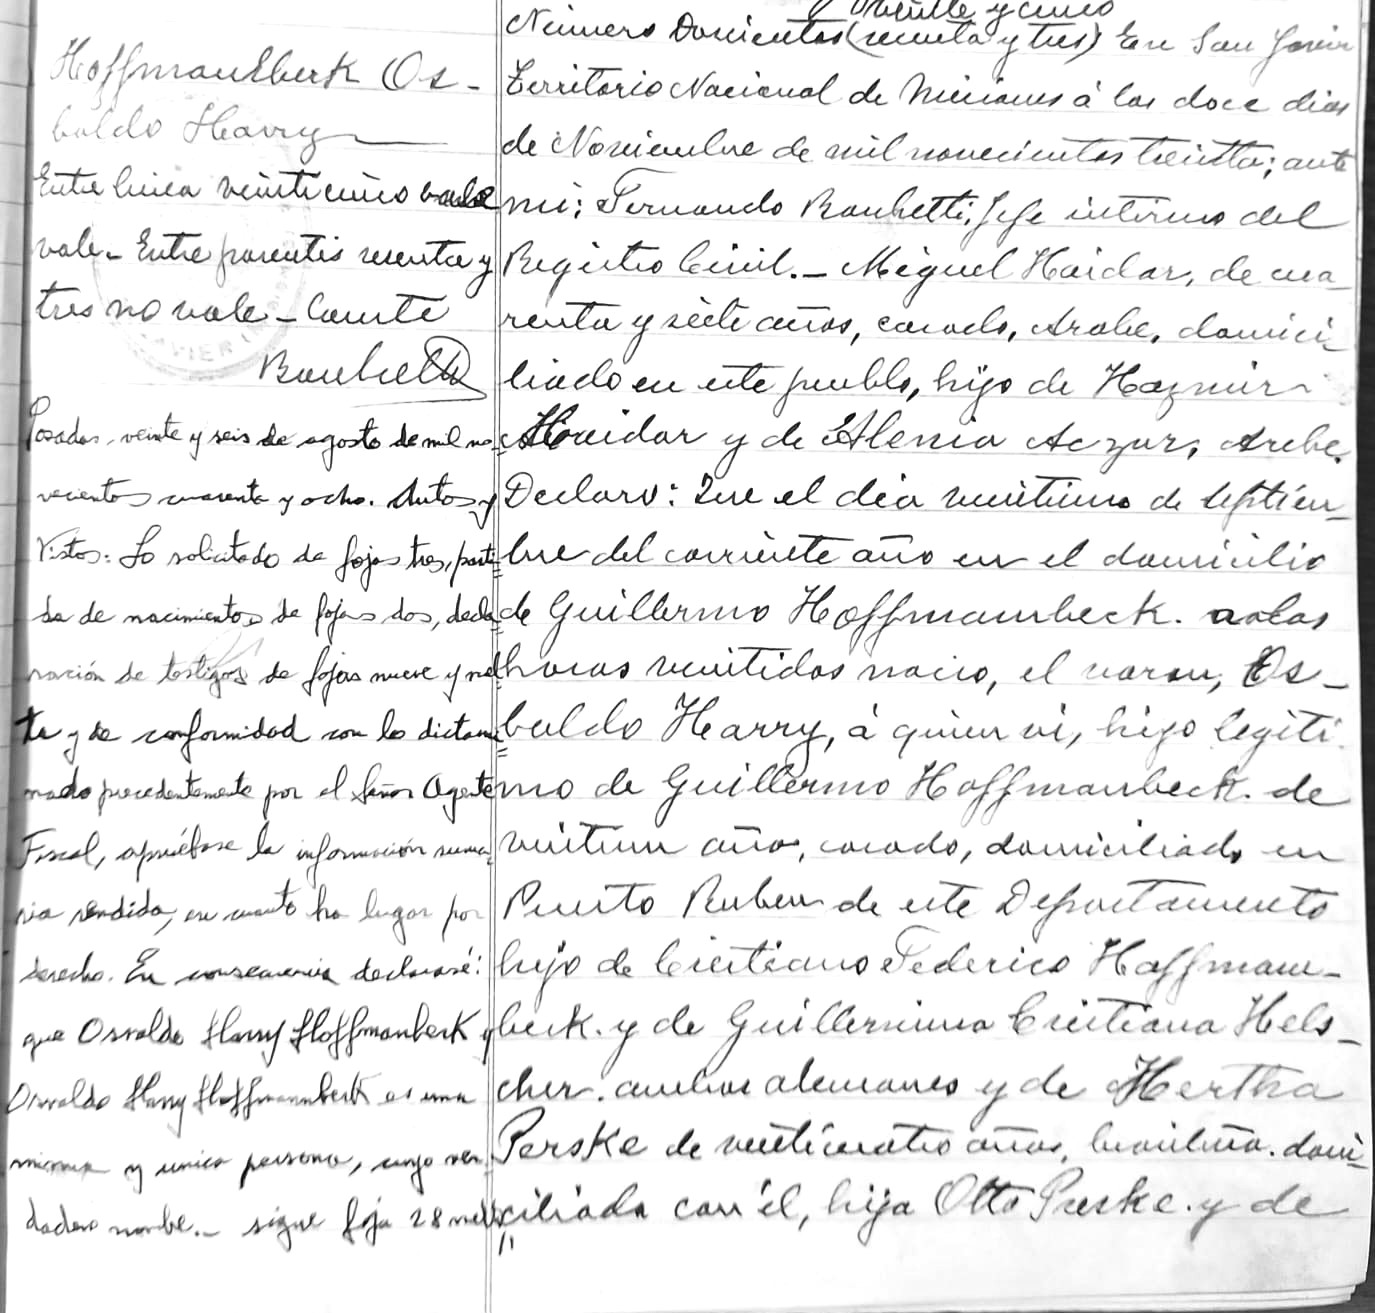 Hoffmanbeck Os-
baldo Harry
Entre linea veinticinco vale
vale - Entre parentis sesenta y
tres no vale - Conste
Baribetti
Posadas, veinte y seis de agosto de mil no-
vecientos cuarenta y ocho. Autos y
Vistos: Lo solicitado de fojas tres, parti-
da de nacimientos de fojas dos, decla-
ración de testigos de fojas nueve y vuel-
ta y de conformidad con lo dictami-
nado precedentemente por el Señor Agente
Fiscal, apruébase la información suma-
ria rendida, en cuanto ha lugar por
derecho. En consecuencia declarase:
que Osvaldo Harry Hoffmanbeck y
Osvaldo Harry Hoffmannbeck es una
misma y unica persona, cuyo ver-
dadero nombre.- sigue foja 28
y veinte y cinco
Número Doscientos (sesenta y tres) En San Javier
Territorio Nacional de Misiones á los doce dias
de Noviembre de mil novecientos treinta; ante
mi; Fernando Baribetti, Jefe interino del
Registro Civil.- Miguel Haidar, de cua-
renta y siete años, casado, Arabe, domici-
liado en este pueblo, hijo de Haznir
Haidar y de Alenia Aczar, Arabe.
Declaro: Que el dia veintiuno de Septiem-
bre del corriente año en el domicilio
de Guillermo Hoffmambeck. a las
horas veintidos nacio, el varon, Os-
baldo Harry, á quien vi, hijo legiti-
mo de Guillermo Hoffmanbeck. de
veintiun años, casado, domiciliado en
Puerto Ruben de este Departamento
hijo de Cristiano Federico Hoffmam-
beck. y de Guillermina Cristiana Hels-
cher. ambos alemanes y de Hertha
Perske de veinticuatro años, brasileña. domi-
ciliada con él, hija Otto Preske. y de